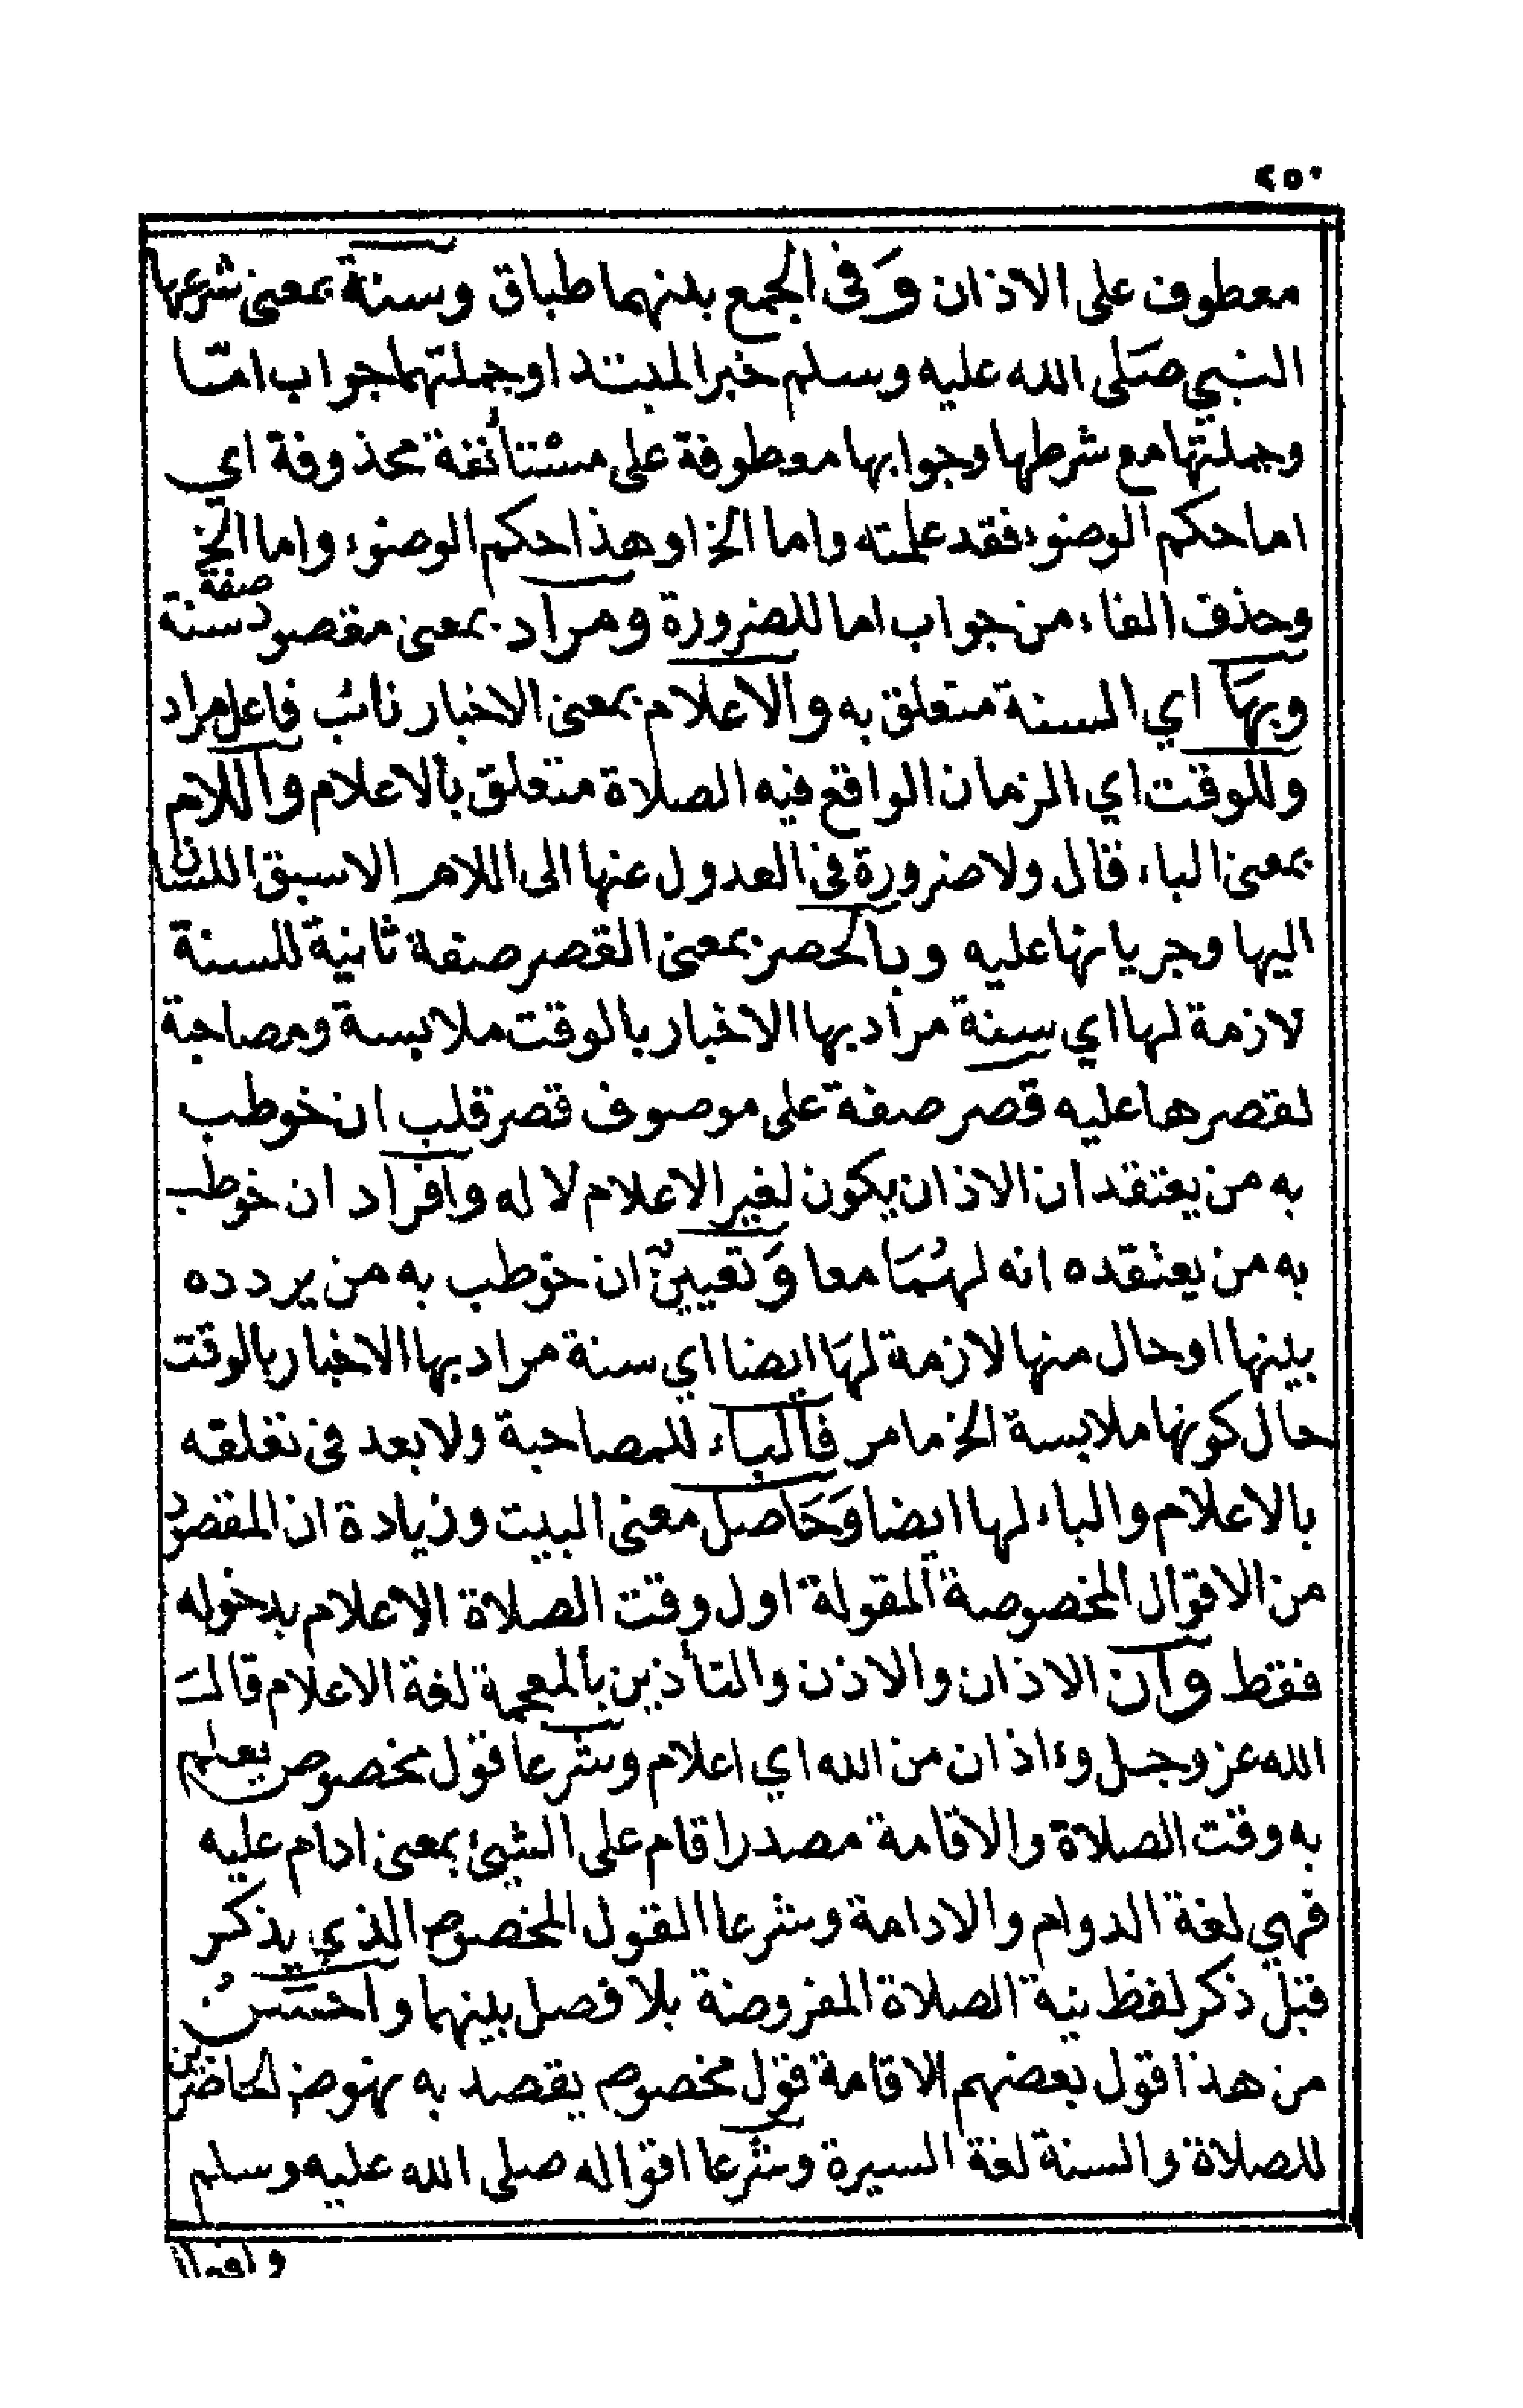 ٢٥٠
معطوف على الاذان وَفى الجمع بينهما طباق وسنة بمعنى شرعها
النبي صَلى الله عليه وسلم خبر المبتدا وجملتهما جواب امّا
وجملتها مع شرطها وجوابها معطوفة على مستأنفة محذوفة اي
اما حكم الوضوء فقد علمته واما الخ او هذا حكم الوضوء واما الخ
وحذف الفاء من جواب اما للضرورة ومراد بمعنى مقصود صفة سنة
وبهَا اي السنة متعلق به والاعلام بمعنى الاخبار نائب فاعل مراد
وللوقت اي الزمان الواقع فيه الصلاة متعلق بالاعلام واللام
بمعنى الباء قال ولا ضرورة في العدول عنها الى اللام الاسبق اللسان
اليها وجريانها عليه وبالحصر بمعنى القصر صفة ثانية للسنة
لازمة لها اي سنة مراد بها الاخبار بالوقت ملابسة ومصاحبة
لقصرها عليه قصر صفة على موصوف قصر قلب ان خوطب
به من يعتقد ان الاذان يكون لغير الاعلام لا له وافراد ان خوطب
به من يعتقده انه لهُمَا معا وَتعيينٌ ان خوطب به من يردده
بينها او حال منها لازمة لهَا ايضا اي سنة مراد بها الاخبار بالوقت
حال كونها ملابسة الخ ما مر فالباء للمصاحبة ولا بعد في تعلقه
بالاعلام والباء لها ايضا وَحَاصل معنى البيت وزيادة ان المقصود
من الاقوال المخصوصة المقولة اول وقت الصلاة الاعلام بدخوله
فقط وان الاذان والاذن والتأذين بالمعجمة لغة الاعلام قال
الله عز وجل وءاذان من الله اي اعلام وشرعا قول مخصوص يعلم
به وقت الصلاة والاقامة مصدر اقام على الشيئ بمعنى ادام عليه
فهي لغة الدوام والادامة وشرعا القول المخصوص الذي يذكر
قبل ذكر لفظ نية الصلاة المفروضة بلا فصل بينهما واحسَنُ
من هذا قول بعضهم الاقامة قول مخصوص يقصد به نهوض الحاضرين
للصلاة والسنة لغة السيرة وشرعا اقواله صلى الله عليه وسلم